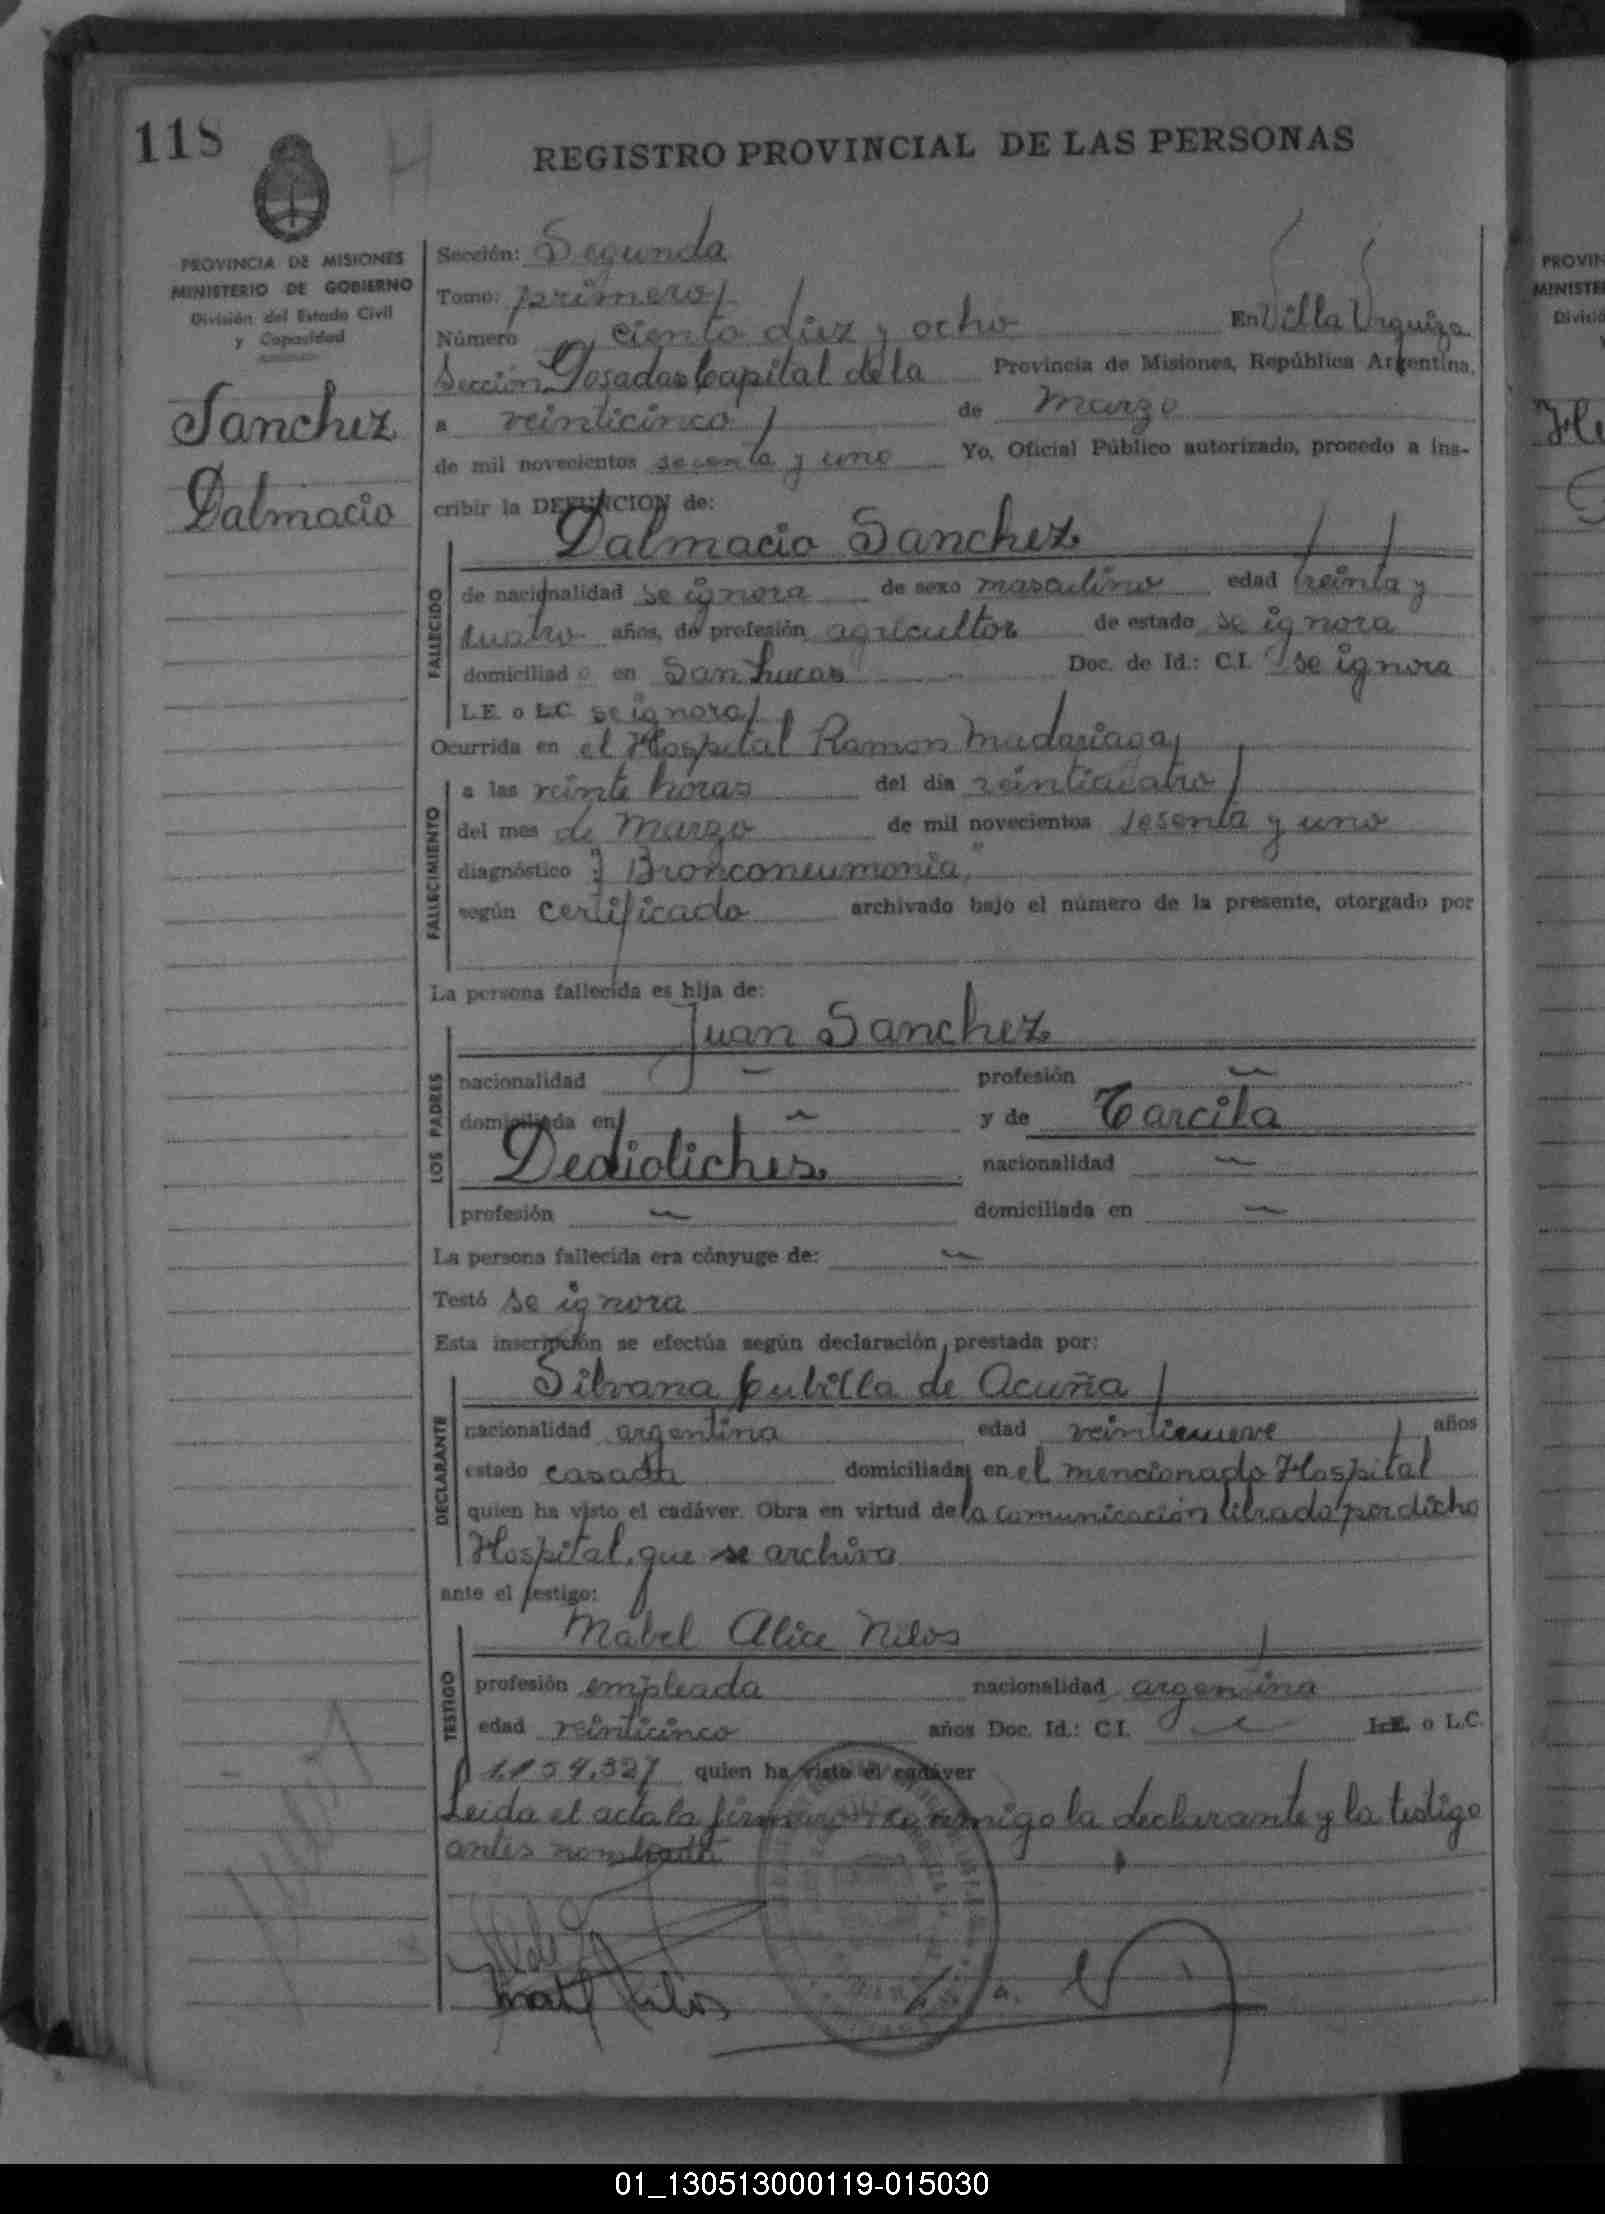 118
REGISTRO PROVINCIAL DE LAS PERSONAS
PROVINCIA DE MISIONES
MINISTERIO DE GOBIERNO
División del Estado Civil
y Capacidad
Sanchez
Dalmacio
Sección: Segunda
Tomo: primero
Número ciento diez y ocho En Villa Urquiza
Sección Posadas Capital de la Provincia de Misiones, República Argentina,
a veinticinco de Marzo
de mil novecientos sesenta y uno Yo, Oficial Público autorizado, procedo a ins-
cribir la DEFUNCION de:
Dalmacio Sanchez
FALLECIDO
de nacionalidad se ignora de sexo masculino edad treinta y
cuatro años, de profesión agricultor de estado se ignora
domiciliado en San Lucas Doc. de Id.: C.I. se ignora
L.E. o L.C. se ignora
Ocurrida en el Hospital Ramon Madariaga
FALLECIMIENTO
a las veinte horas del día veinticuatro
del mes de Marzo de mil novecientos sesenta y uno
diagnóstico: "Bronconeumonia"
según certificado archivado bajo el número de la presente, otorgado por
La persona fallecida es hija de:
Juan Sanchez
LOS PADRES
nacionalidad — profesión —
domiciliada en — y de Tarcila
Dedioliches nacionalidad —
profesión — domiciliada en —
La persona fallecida era cónyuge de: —
Testó se ignora
Esta inscripción se efectúa según declaración prestada por:
Silvana Cubilla de Acuña
DECLARANTE
nacionalidad argentina edad veintinueve años
estado casada domiciliada en el mencionado Hospital
quien ha visto el cadáver. Obra en virtud de la comunicación librada por dicho
Hospital, que se archiva
ante el testigo:
Mabel Alice Nilos
TESTIGO
profesión empleada nacionalidad argentina
edad veinticinco años Doc. Id.: C.I. — L.E. o L.C.
1.154.327 quien ha visto el cadáver
Leida el acta la firmaron conmigo la declarante y la testigo
antes nombrada
Mabel Nilos
PROVIN
MINISTE
Divisió
01_130513000119-015030